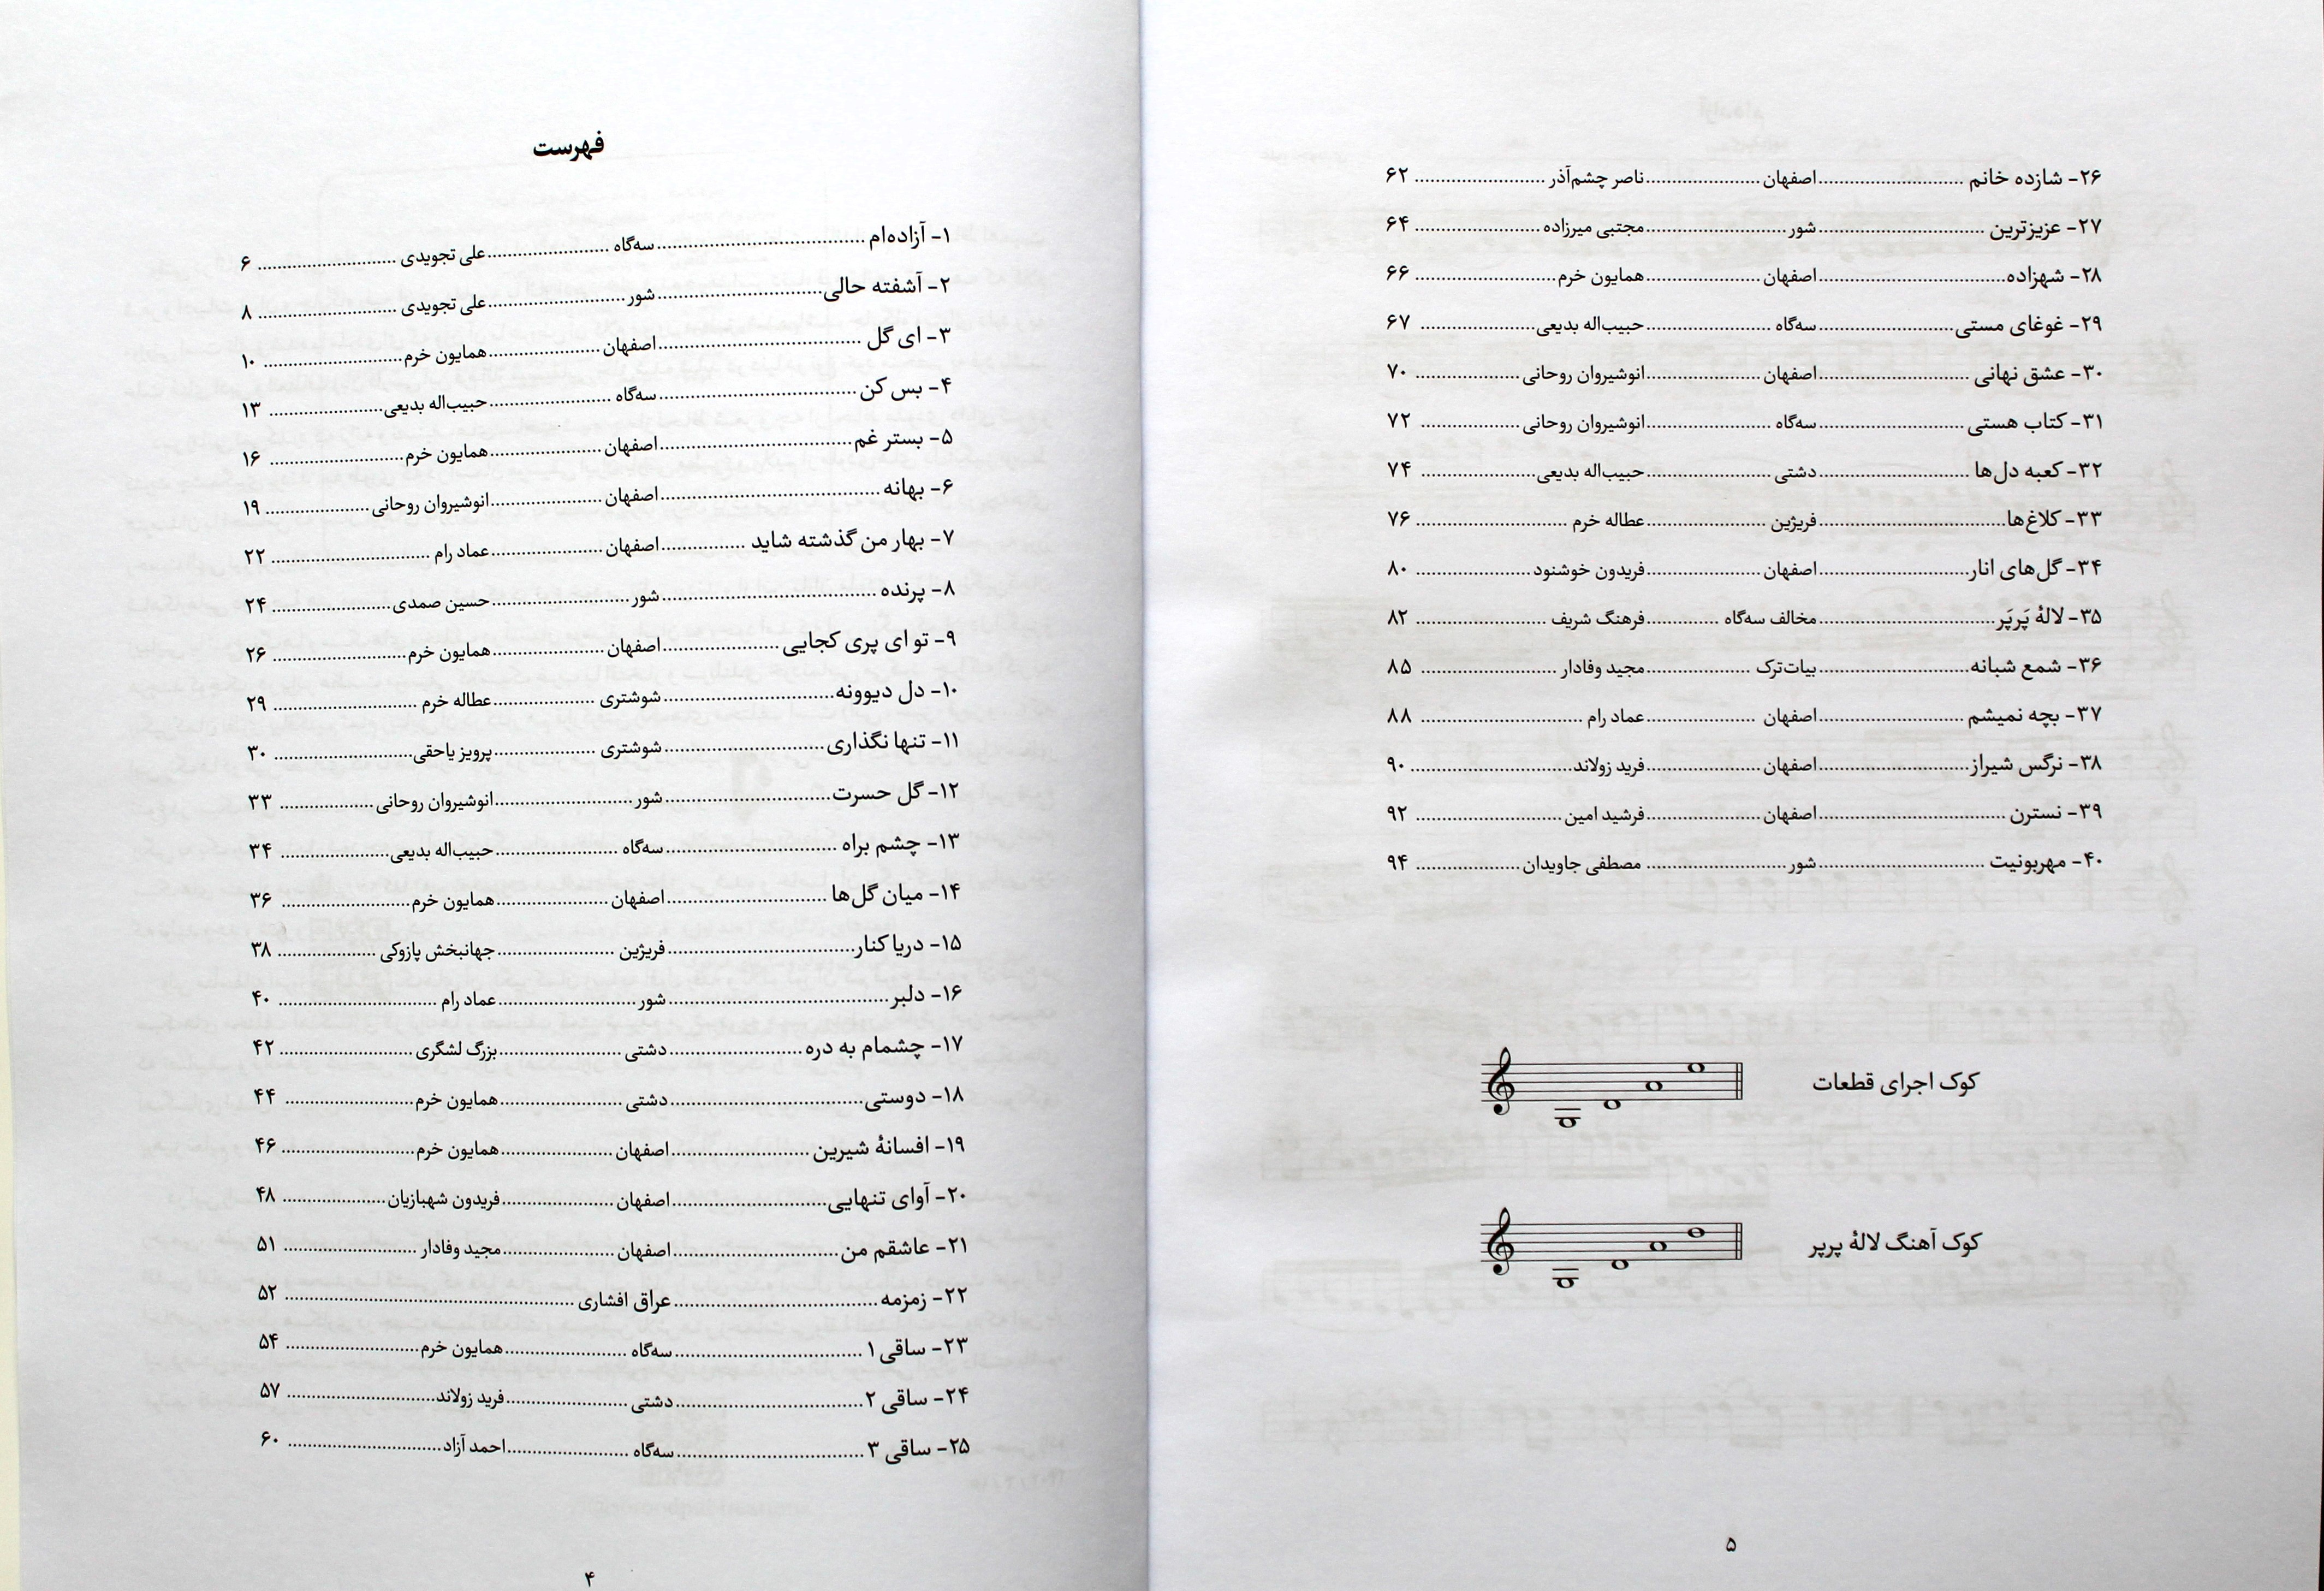 فهرست
۱- آزاده‌ام ........ سه‌گاه ........ علی تجویدی ........ ۶
۲- آشفته حالی ........ شور ........ علی تجویدی ........ ۸
۳- ای گل ........ اصفهان ........ همایون خرم ........ ۱۰
۴- بس کن ........ سه‌گاه ........ حبیب‌اله بدیعی ........ ۱۳
۵- بستر غم ........ اصفهان ........ همایون خرم ........ ۱۶
۶- بهانه ........ اصفهان ........ انوشیروان روحانی ........ ۱۹
۷- بهار من گذشته شاید ........ اصفهان ........ عماد رام ........ ۲۲
۸- پرنده ........ شور ........ حسین صمدی ........ ۲۴
۹- تو ای پری کجایی ........ اصفهان ........ همایون خرم ........ ۲۶
۱۰- دل دیوونه ........ شوشتری ........ عطااله خرم ........ ۲۹
۱۱- تنها نگذاری ........ شوشتری ........ پرویز یاحقی ........ ۳۰
۱۲- گل حسرت ........ شور ........ انوشیروان روحانی ........ ۳۳
۱۳- چشم براه ........ سه‌گاه ........ حبیب‌اله بدیعی ........ ۳۴
۱۴- میان گل‌ها ........ اصفهان ........ همایون خرم ........ ۳۶
۱۵- دریا کنار ........ فریژین ........ جهانبخش پازوکی ........ ۳۸
۱۶- دلبر ........ شور ........ عماد رام ........ ۴۰
۱۷- چشمام به دره ........ دشتی ........ بزرگ لشگری ........ ۴۲
۱۸- دوستی ........ دشتی ........ همایون خرم ........ ۴۴
۱۹- افسانهٔ شیرین ........ اصفهان ........ همایون خرم ........ ۴۶
۲۰- آوای تنهایی ........ اصفهان ........ فریدون شهبازیان ........ ۴۸
۲۱- عاشقم من ........ اصفهان ........ مجید وفادار ........ ۵۱
۲۲- زمزمه ........ عراق افشاری ........ ۵۲
۲۳- ساقی ۱ ........ سه‌گاه ........ همایون خرم ........ ۵۴
۲۴- ساقی ۲ ........ دشتی ........ فرید زولاند ........ ۵۷
۲۵- ساقی ۳ ........ سه‌گاه ........ احمد آزاد ........ ۶۰
۴
۲۶- شازده خانم ........ اصفهان ........ ناصر چشم‌آذر ........ ۶۲
۲۷- عزیزترین ........ شور ........ مجتبی میرزاده ........ ۶۴
۲۸- شهزاده ........ اصفهان ........ همایون خرم ........ ۶۶
۲۹- غوغای مستی ........ سه‌گاه ........ حبیب‌اله بدیعی ........ ۶۷
۳۰- عشق نهانی ........ اصفهان ........ انوشیروان روحانی ........ ۷۰
۳۱- کتاب هستی ........ سه‌گاه ........ انوشیروان روحانی ........ ۷۲
۳۲- کعبه دل‌ها ........ دشتی ........ حبیب‌اله بدیعی ........ ۷۴
۳۳- کلاغ‌ها ........ فریژین ........ عطااله خرم ........ ۷۶
۳۴- گل‌های انار ........ اصفهان ........ فریدون خوشنود ........ ۸۰
۳۵- لالهٔ پَرپَر ........ مخالف سه‌گاه ........ فرهنگ شریف ........ ۸۲
۳۶- شمع شبانه ........ بیات‌ترک ........ مجید وفادار ........ ۸۵
۳۷- بچه نمیشم ........ اصفهان ........ عماد رام ........ ۸۸
۳۸- نرگس شیراز ........ اصفهان ........ فرید زولاند ........ ۹۰
۳۹- نسترن ........ اصفهان ........ فرشید امین ........ ۹۲
۴۰- مهربونیت ........ شور ........ مصطفی جاویدان ........ ۹۴
کوک اجرای قطعات
کوک آهنگ لالهٔ پرپر
۵